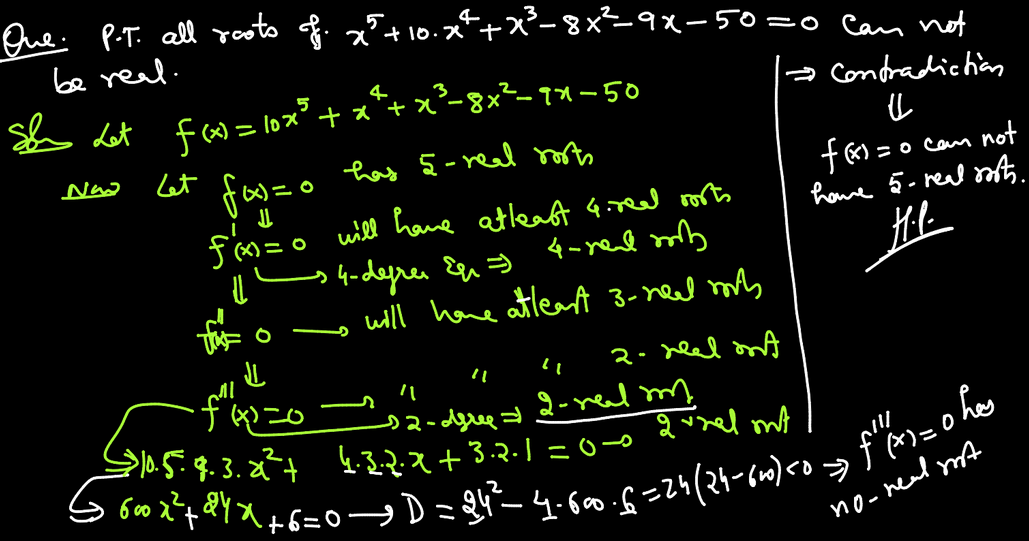 Que. P.T. all roots of. x⁵+10.x⁴+x³-8x²-9x-50=0 can not
be real.
Soln Let f(x)=10x⁵+x⁴+x³-8x²-9x-50
Now Let f(x)=0 has 5-real roots
⇓
f'(x)=0 will have atleast 4-real roots
→ 4-degree Eqn ⇒ 4-real roots
⇓
f''(x)=0 → will have atleast 3-real roots
⇓ 2-real root
f'''(x)=0 → " " "
→ 2-degree ⇒ 2-real root
⇒ 10.5.4.3.x²+ 4.3.2.x+3.2.1=0 → 2-real root
⇒ 600x²+24x+6=0 → D=24²-4.600.6=24(24-600)<0 ⇒ f'''(x)=0 has
no-real root
⇒ Contradiction
⇓
f(x)=0 can not
have 5-real roots.
H.P.